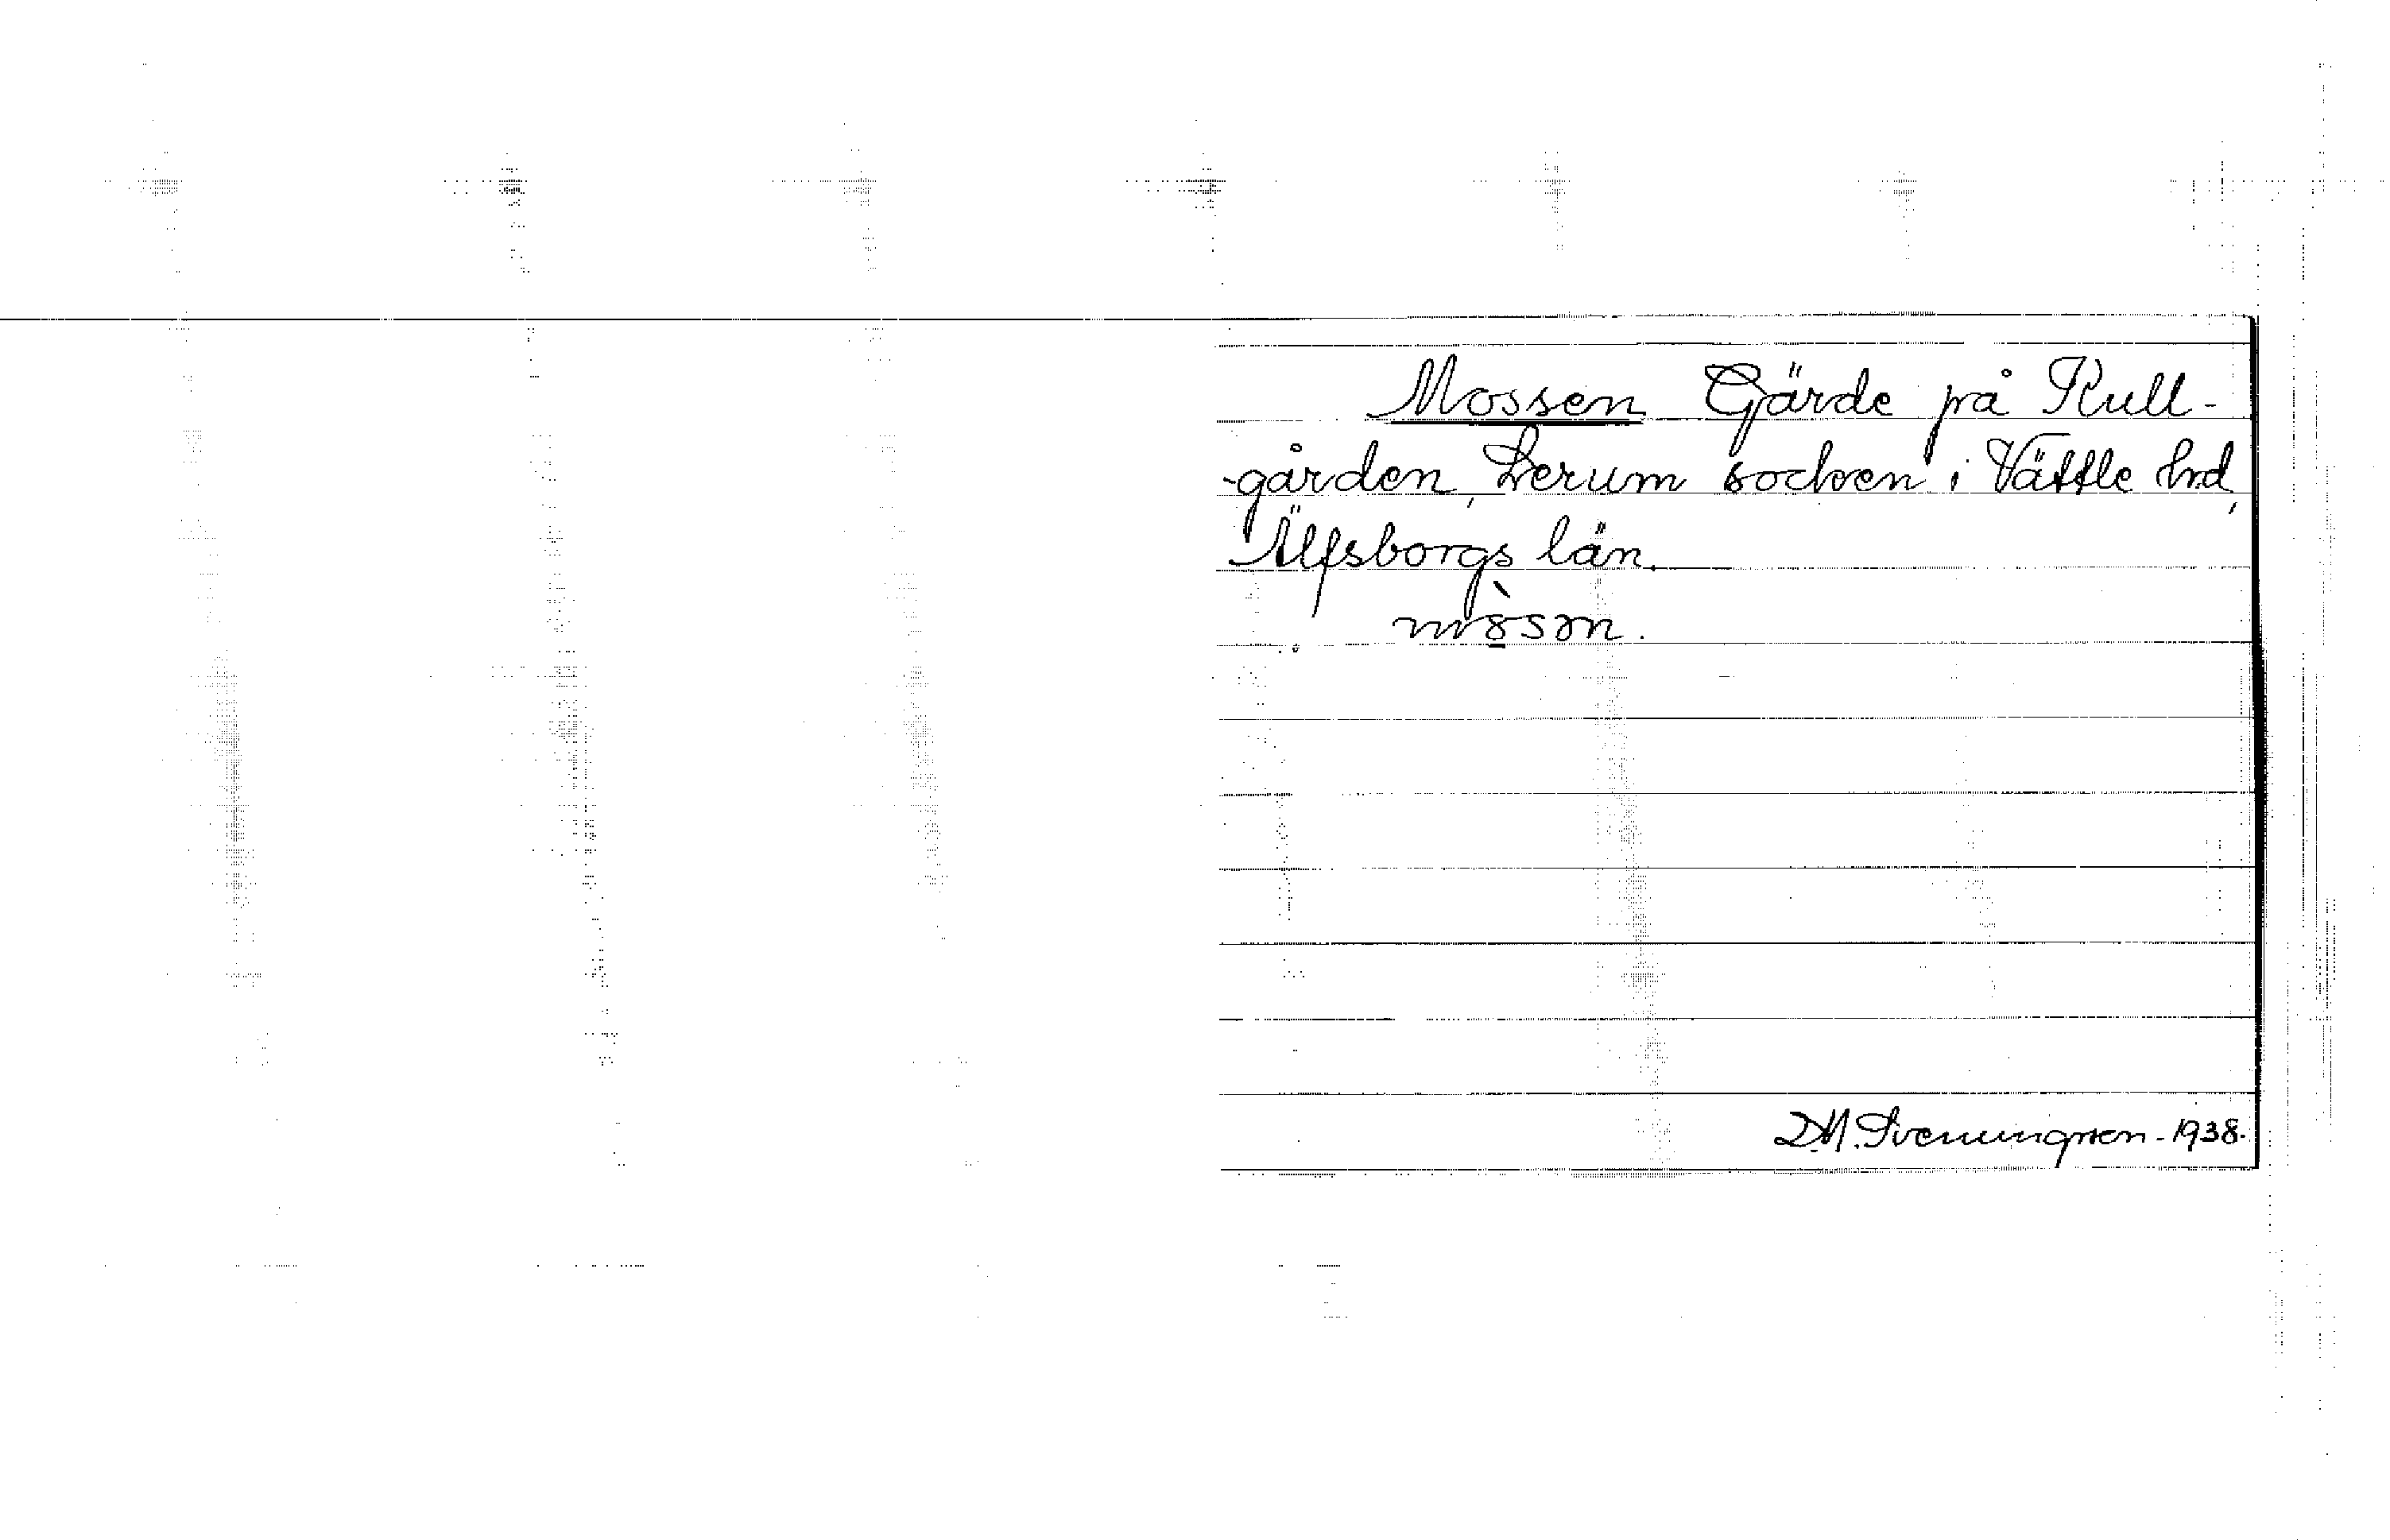 Mossen Gärde på Rull-
-gården, Lerum socken i Vättle hrd,
Älfsborgs län.
D.M. Svenningsson - 1938.